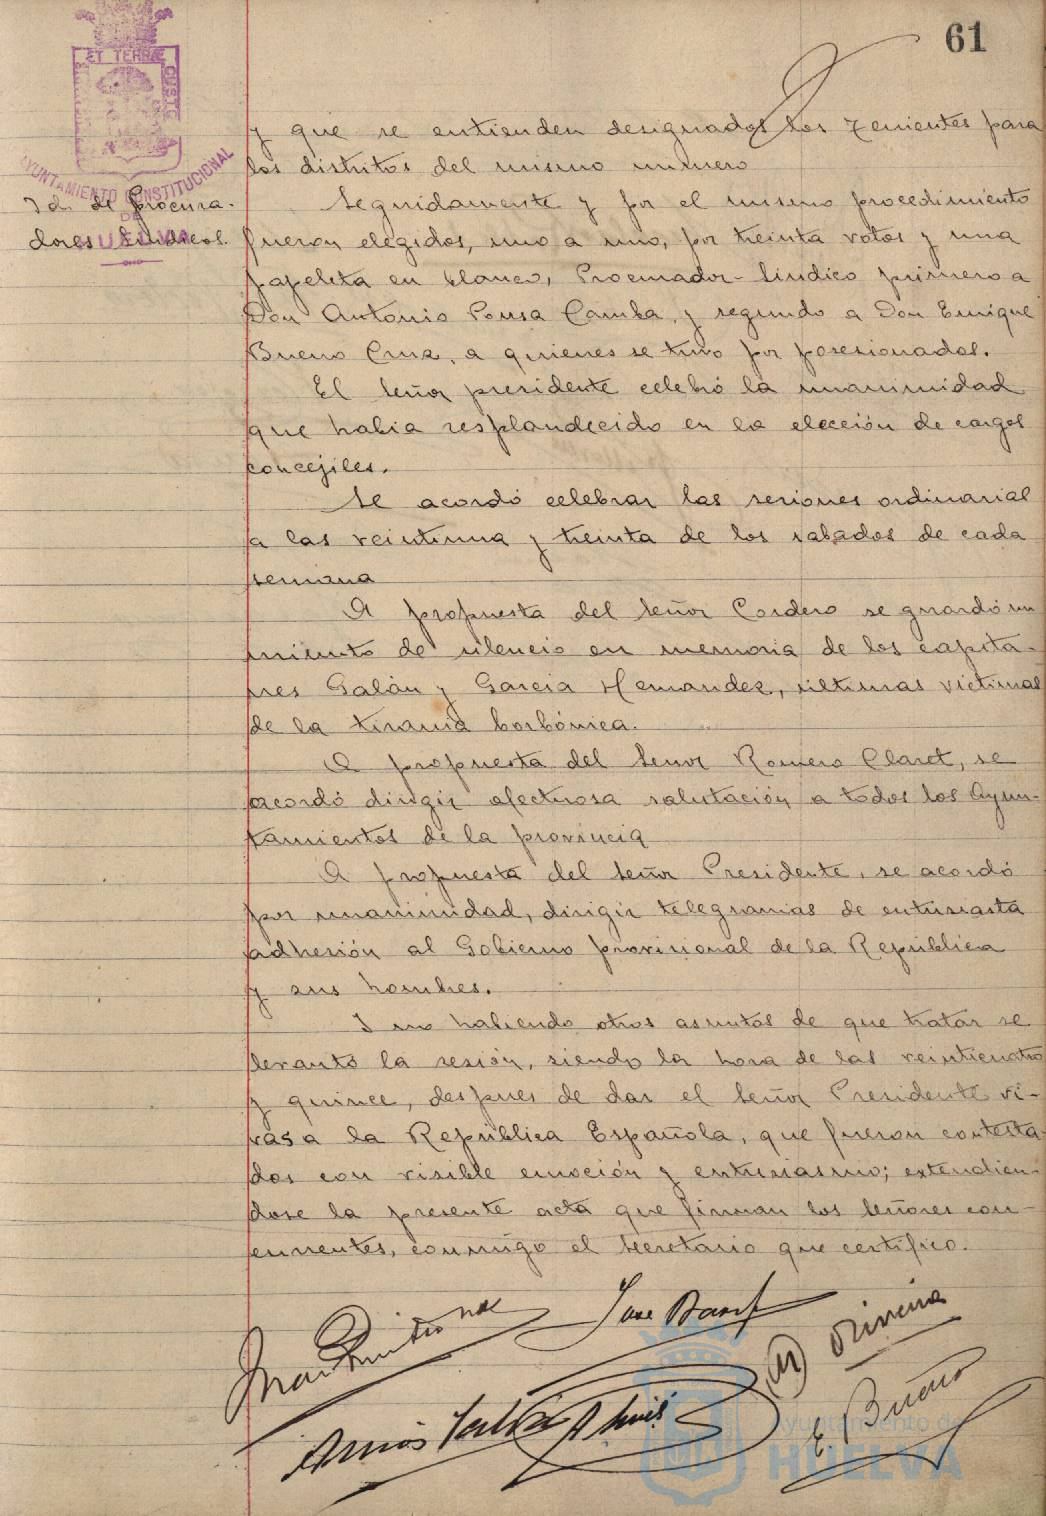 61
ET TERRÆ
CUSTO
AYUNTAMIENTO CONSTITUCIONAL
DE
HUELVA
Id. de Procura-
dores Síndicos.
y que se entienden designados los Tenientes para
los distritos del mismo número
Seguidamente y por el mismo procedimiento
fueron elegidos, uno a uno, por treinta votos y una
papeleta en blanco, Procurador-Síndico primero a
Don Antonio Pousa Camba, y segundo a Don Enrique
Bueno Cruz, a quienes se tuvo por posesionados.
El Señor presidente celebró la unanimidad
que habia resplandecido en la elección de cargos
concejiles.
Se acordó celebrar las sesiones ordinarias
a las veintiuna y treinta de los sabados de cada
semana
A propuesta del Señor Cordero se guardó un
minuto de silencio en memoria de los capita-
nes Galán y Garcia Hernandez, últimas victimas
de la tirania borbónica.
A propuesta del Señor Romero Claret, se
acordó dirigir afectuosa salutación a todos los Ayun-
tamientos de la provincia
A propuesta del Señor Presidente, se acordó
por unanimidad, dirigir telegramas de entusiasta
adhesión al Gobierno provisional de la República
y sus hombres.
Y no habiendo otros asuntos de que tratar se
levantó la sesión, siendo la hora de las veinticuatro
y quince, despues de dar el Señor Presidente vi-
vas a la República Española, que fueron contesta-
dos con visible emoción y entusiasmo; extendien-
dose la presente acta que firman los Señores con-
currentes, conmigo el Secretario que certifico.
Jose Barl
E. Bueno
Ayuntamiento de
HUELVA